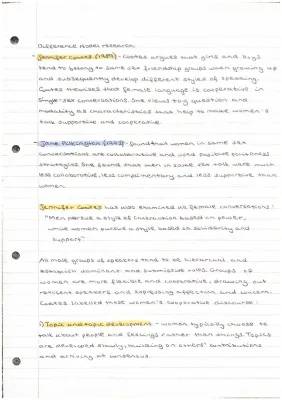 Difference Model research
Jennifer Coates (1989) - Coates argues that girls and boys
tend to belong to same sex friendship groups when growing up
and subsequently develop different styles of speaking.
Coates theorises that female language is cooperative in
single-sex conversations. She views tag question and
modality as characteristics that help to make women's
talk supportive and cooperative.
Jane Pilkington (1992) - found that women in same sex
conversations are collaborative and used positive politeness
strategies. She found that men in same sex talk were much
less collaborative, less complimentary and less supportive than
women.
Jennifer Coates has also examined all female conversations:
"Men pursue a style of interaction based on power,
while women pursue a style based on solidarity and
support"
All male groups of speakers tend to be hierarchical and
establish dominant and submissive roles. Groups of
women are more flexible and cooperative, drawing out
reticent speakers and expressing affection and concern.
Coates labelled these women's supportive discourse:
1) Topic and topic development - women typically choose to
talk about people and feelings rather than things. Topics
are developed slowly, building on others' contributions
and arriving at consensus.